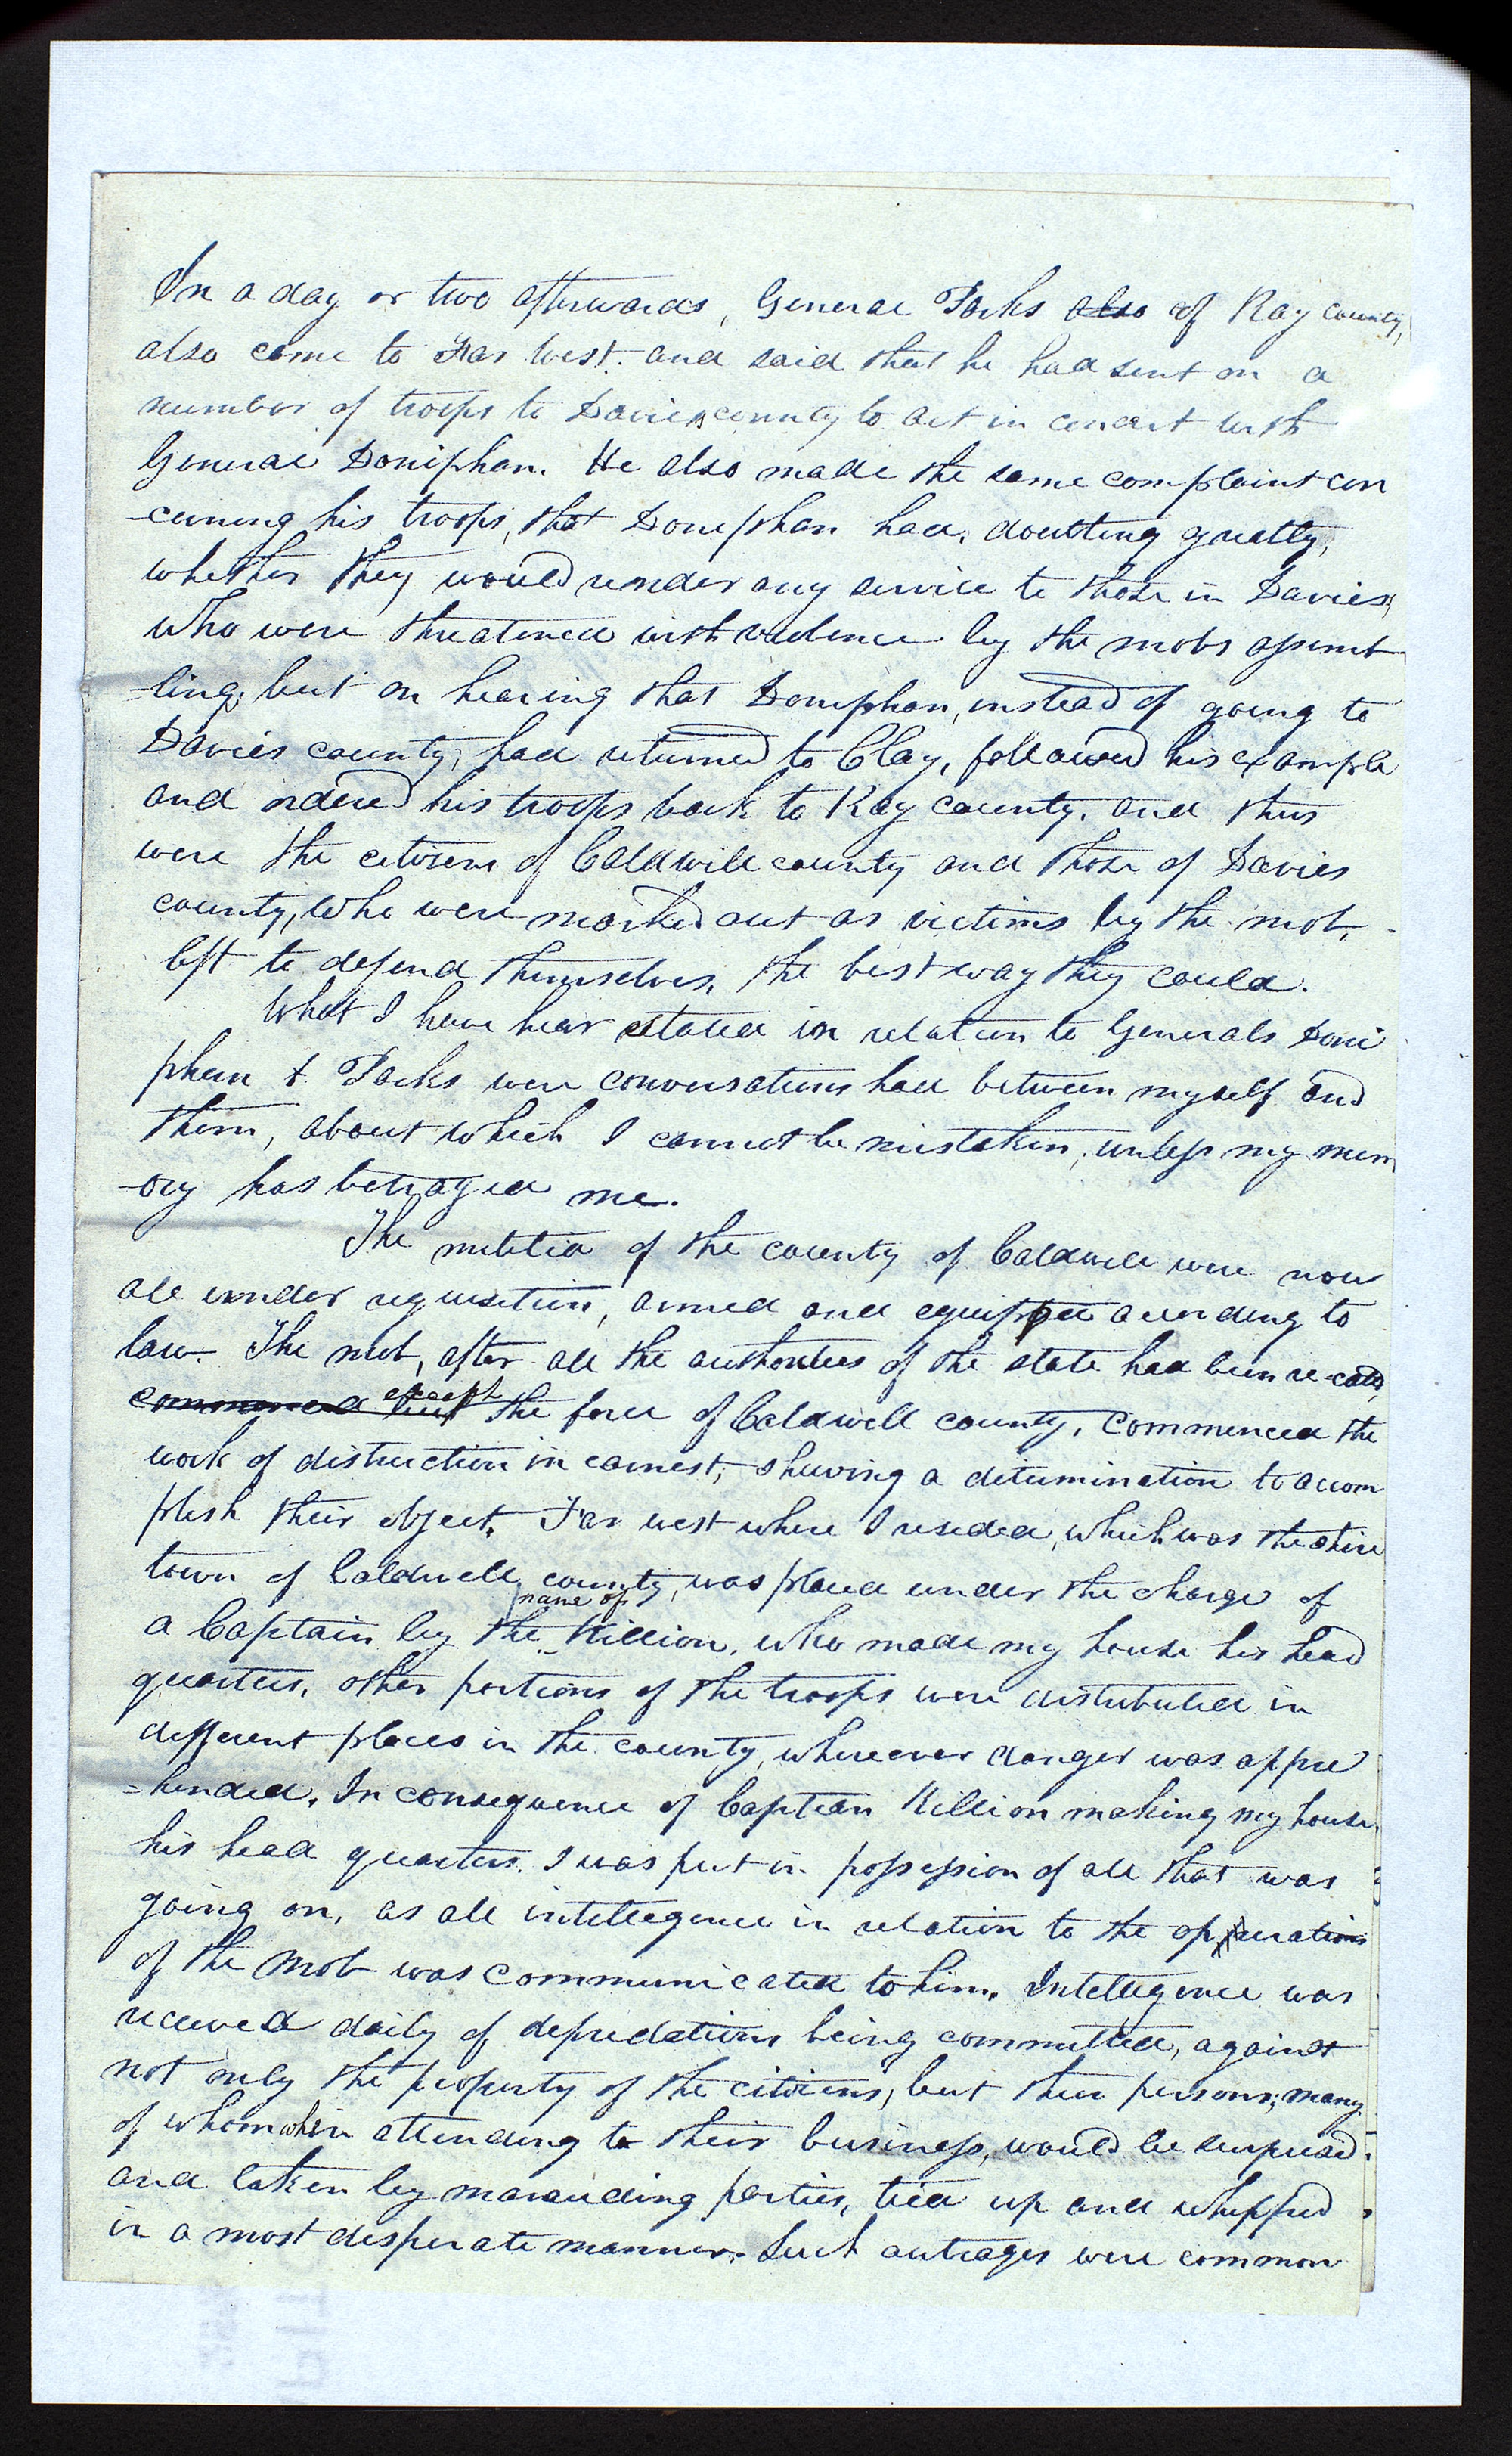 In a day or two afterwards, General Parks also of Ray county,
also came to Far West. and said that he had sent on a
number of troops to Davies county to act in concert with
General Doniphan. He also made the same complaint con
-cerning his troops, that Doniphan had, doubting greatly,
whether they would render any service to those in Davies,
who were threatened with violence by the mobs assemb
-ling, but on hearing that Doniphan, instead of going to
Davies county, had returned to Clay, followed his example
and ordered his troops back to Ray county. and thus
were the citizens of Caldwell county and those of Davies
county, who were marked out as victims by the mob,
left to defend themselves, the best way they could.
What I have hear stated in relation to Generals Doni
phan & Parks were conversations had between myself and
them, about which I cannot be mistaken, unless my mem
-ory has betrayed me.
The militia of the county of Caldwell were now
all under requisition, armed and equipped according to
law. The mob, after all the authorities of the state had been re-cald,
commenced but except the force of Caldwell county, commenced the
work of distruction in earnest; shewing a determination to accom
plish their object. Far west where I resided, which was the shire
town of Caldwell county, was placed under the charge of
a Captain by the name of Killion, who made my house his head
quarters, other portions of the troops were distributed in
different places in the county, wherever danger was appre
-hended. In consequence of Captian Killion making my house
his head quarters. I was put in possession of all that was
going on, as all intellegence in relation to the opperations
of the mob was communicated to him. Intellegence was
received daily of depredations being committed, against
not only the property of the citizens, but their persons; many
of whom when attending to their business, would be surprised.
and taken by marauding parties, tied up and whipped
in a most desperate manner. Such outrages were common